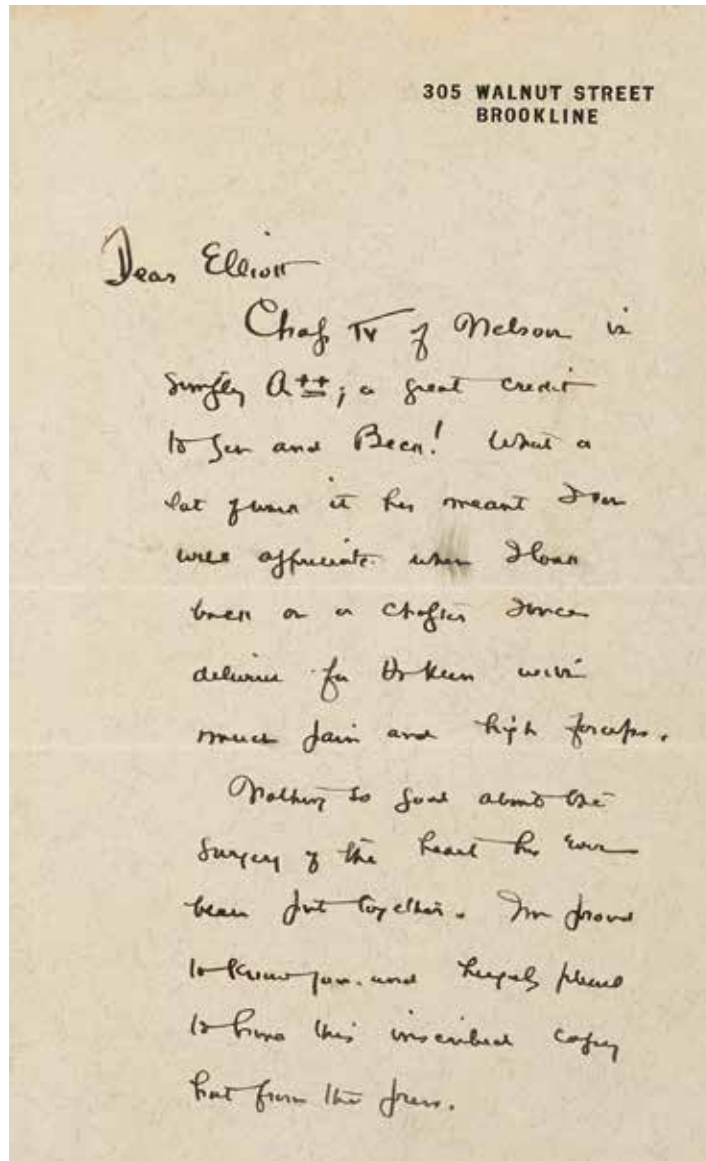 305 WALNUT STREET
BROOKLINE
Dear Elliott
Chap IV of Nelson is
simply A++; a great credit
to you and Beck! What a
lot of work it has meant I can
well appreciate when I look
back on a chapter I once
delivered for Dr Keen with
much pain and high forceps.
Nothing so good about the
surgery of the heart has ever
been put together. I'm proud
to know you and hugely pleased
to have this inscribed copy
hot from the press.